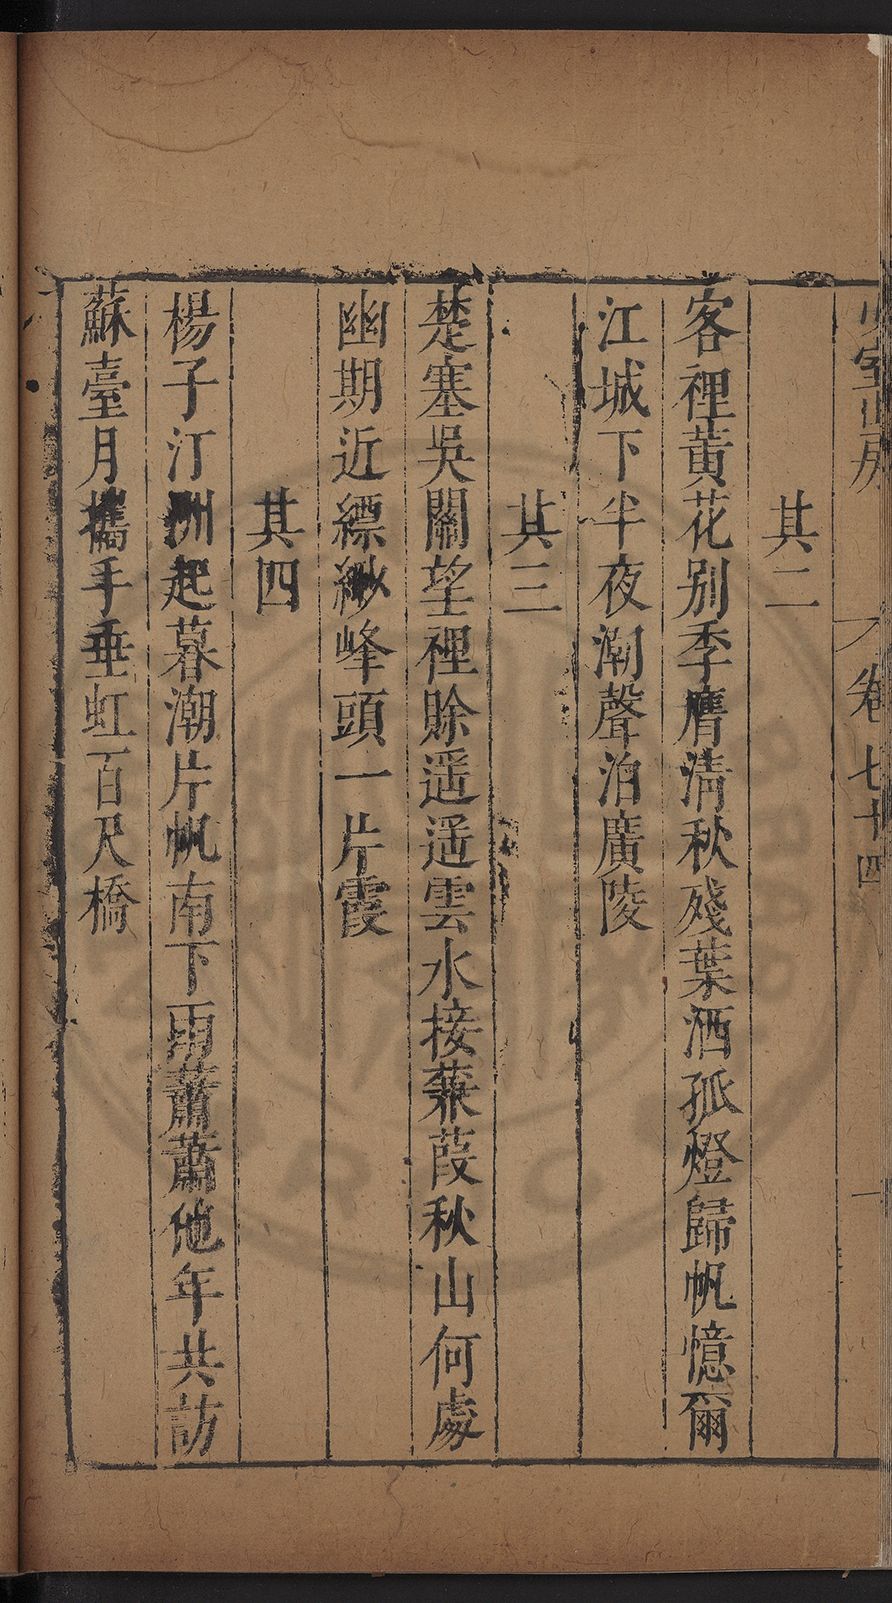 少室山房
卷七十四
其二
客裡黃花別季鷹淸秋殘葉洒孤燈歸帆憶爾
江城下半夜潮聲泊廣陵
其三
楚塞吳關望裡賖遥遥雲水接蒹葭秋山何處
幽期近縹緲峰頭一片霞
其四
楊子汀洲起暮潮片帆南下雨蕭蕭他年共訪
蘇臺月攜手垂虹百尺橋